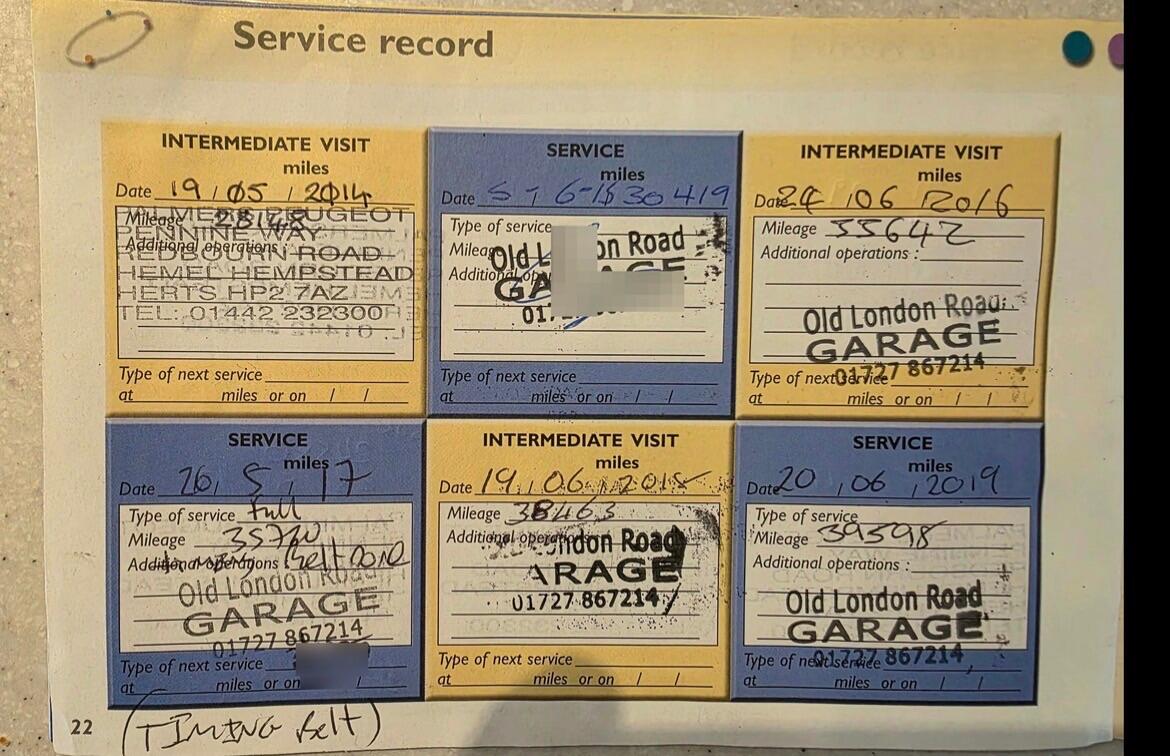 Service record
INTERMEDIATE VISIT
miles
Date 19 / 05 / 2014
Mileage 28148
Additional operations :
PALMERS PEUGEOT
PENNINE WAY
REDBOURN ROAD
HEMEL HEMPSTEAD
HERTS HP2 7AZ
TEL: 01442 232300
Type of next service
at miles or on / /
SERVICE
miles
Date 5 - 6-15 30419
Type of service
Mileage
Additional
Old London Road
GARAGE
Type of next service
at miles or on / /
INTERMEDIATE VISIT
miles
Date 24 / 06 / 2016
Mileage 33642
Additional operations :
Old London Road
GARAGE
01727 867214
Type of next service
at miles or on / /
SERVICE
miles
Date 26 / 5 / 17
Type of service Full
Mileage 35720
Additional operations Belt done
Old London Road
GARAGE
01727 867214
Type of next service
at miles or on /
INTERMEDIATE VISIT
miles
Date 19 / 06 / 2018
Mileage 38463
Additional operations
London Road
GARAGE
01727 867214
Type of next service
at miles or on / /
SERVICE
miles
Date 20 / 06 / 2019
Type of service
Mileage 39598
Additional operations :
Old London Road
GARAGE
01727 867214
Type of next service
at miles or on / /
22
(TIMING Belt)